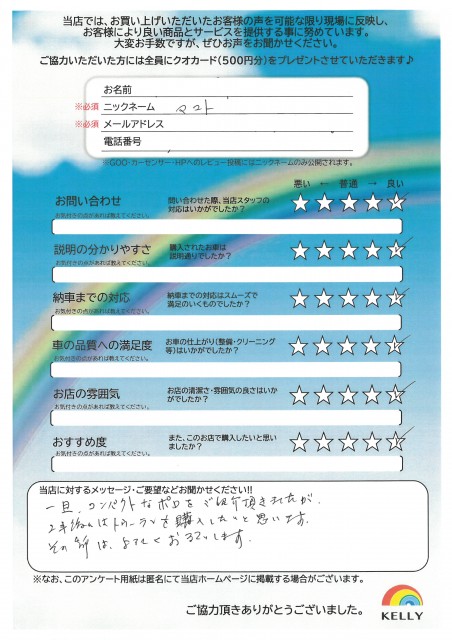 当店では、お買い上げいただいたお客様の声を可能な限り現場に反映し、
お客様により良い商品とサービスを提供する事に努めています。
大変お手数ですが、ぜひお声をお聞かせください。
ご協力いただいた方には全員にクオカード(500円分)をプレゼントさせていただきます♪
お名前
※必須 ニックネーム マコト
※必須 メールアドレス
電話番号
※GOO・カーセンサー・HPへのレビュー投稿にはニックネームのみ公開されます。
悪い ← 普通 → 良い
お問い合わせ 問い合わせた際、当店スタッフの
お気付きの点があれば教えてください。 対応はいかがでしたか?
説明の分かりやすさ 購入されたお車は
お気付きの点があれば教えてください。 説明通りでしたか?
納車までの対応 納車までの対応はスムーズで
お気付きの点があれば教えてください。 満足のいくものでしたか?
車の品質への満足度 お車の仕上がり(整備・クリーニング
お気付きの点があれば教えてください。 等)はいかがでしたか?
お店の雰囲気 お店の清潔さ・雰囲気の良さはいか
お気付きの点があれば教えてください。 がでしたか?
おすすめ度 また、このお店で購入したいと思い
お気付きの点があれば教えてください。 ましたか?
当店に対するメッセージ・ご要望などお聞かせください!!
一旦、コンパクトなポロをご紹介頂きましたが、
2年後にはトゥーランを購入したいと思います。
その節は、よろしくお願いします。
※なお、このアンケート用紙は匿名にて当店ホームページに掲載する場合がございます。
ご協力頂きありがとうございました。
KELLY